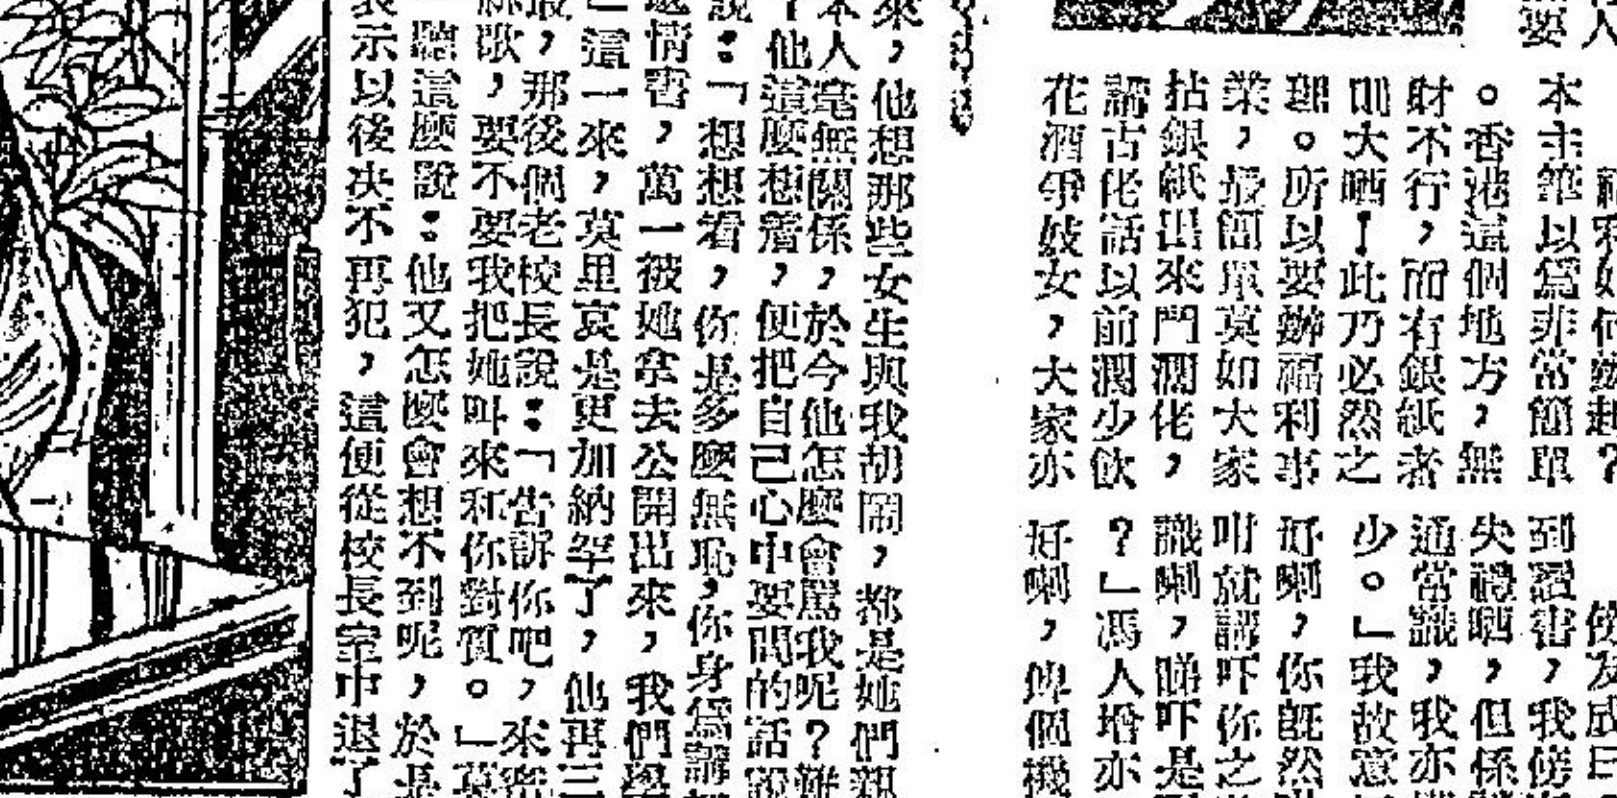 人
要
本主筆以爲非常簡單
。香港這個地方,無
財不行,而有銀紙者
則大晒!此乃必然之
理。所以要辦福利事
業,最簡單莫如大家
拈銀紙出來鬥濶佬,
講古佬話以前濶少飲
花酒爭妓女,大家亦
到讀書,我傍
失禮晒,但係
通常識,我亦
少。」我故意
好喇,你既然
咁就講吓你之
識喇,睇吓是
?」馮人增亦
好喇,俾個機
來,他想那些女生與我胡鬧,都是她們親
本人毫無關係,於今他怎麼會罵我呢?難
他這麼想着,便把自己心中要問的話
說:「想想看,你是多麼無恥,你身爲講
情書,萬一被她拿去公開出來,我們學
」這一來,莫里哀是更加納罕了,他再三
,那後個老校長說:「告訴你吧,來
歌,要不要我把她叫來和你對質。」莫
聽這麼說:他又怎麼會想不到呢,於是
表示以後决不再犯,這便從校長室中退了